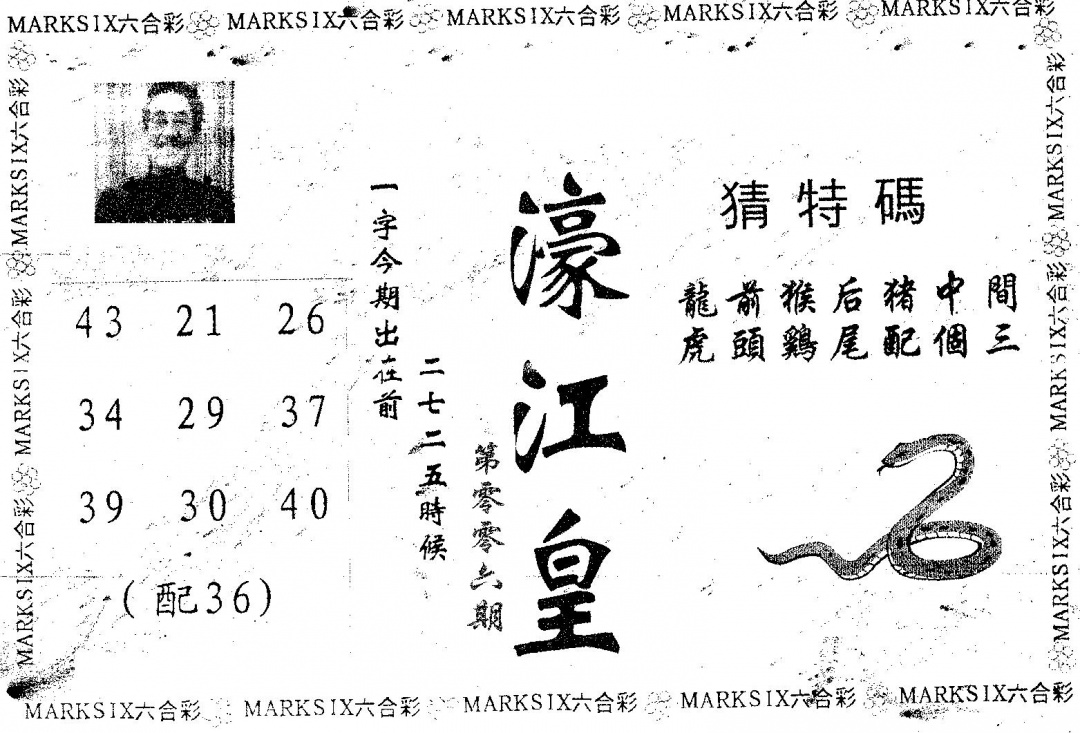 MARKSIX六合彩 MARKSIX六合彩 MARKSIX六合彩 MARKSIX六合彩 MARKSIX六合彩
猜特碼
龍前猴后猪中間
虎頭鷄尾配個三
濠江皇
第零零六期
一字今期出在前
二七二五時候
43 21 26
34 29 37
39 30 40
(配36)
MARKSIX六合彩 MARKSIX六合彩 MARKSIX六合彩
MARKSIX六合彩 MARKSIX六合彩 MARKSIX六合彩
MARKSIX六合彩 MARKSIX六合彩 MARKSIX六合彩 MARKSIX六合彩 MARKSIX六合彩